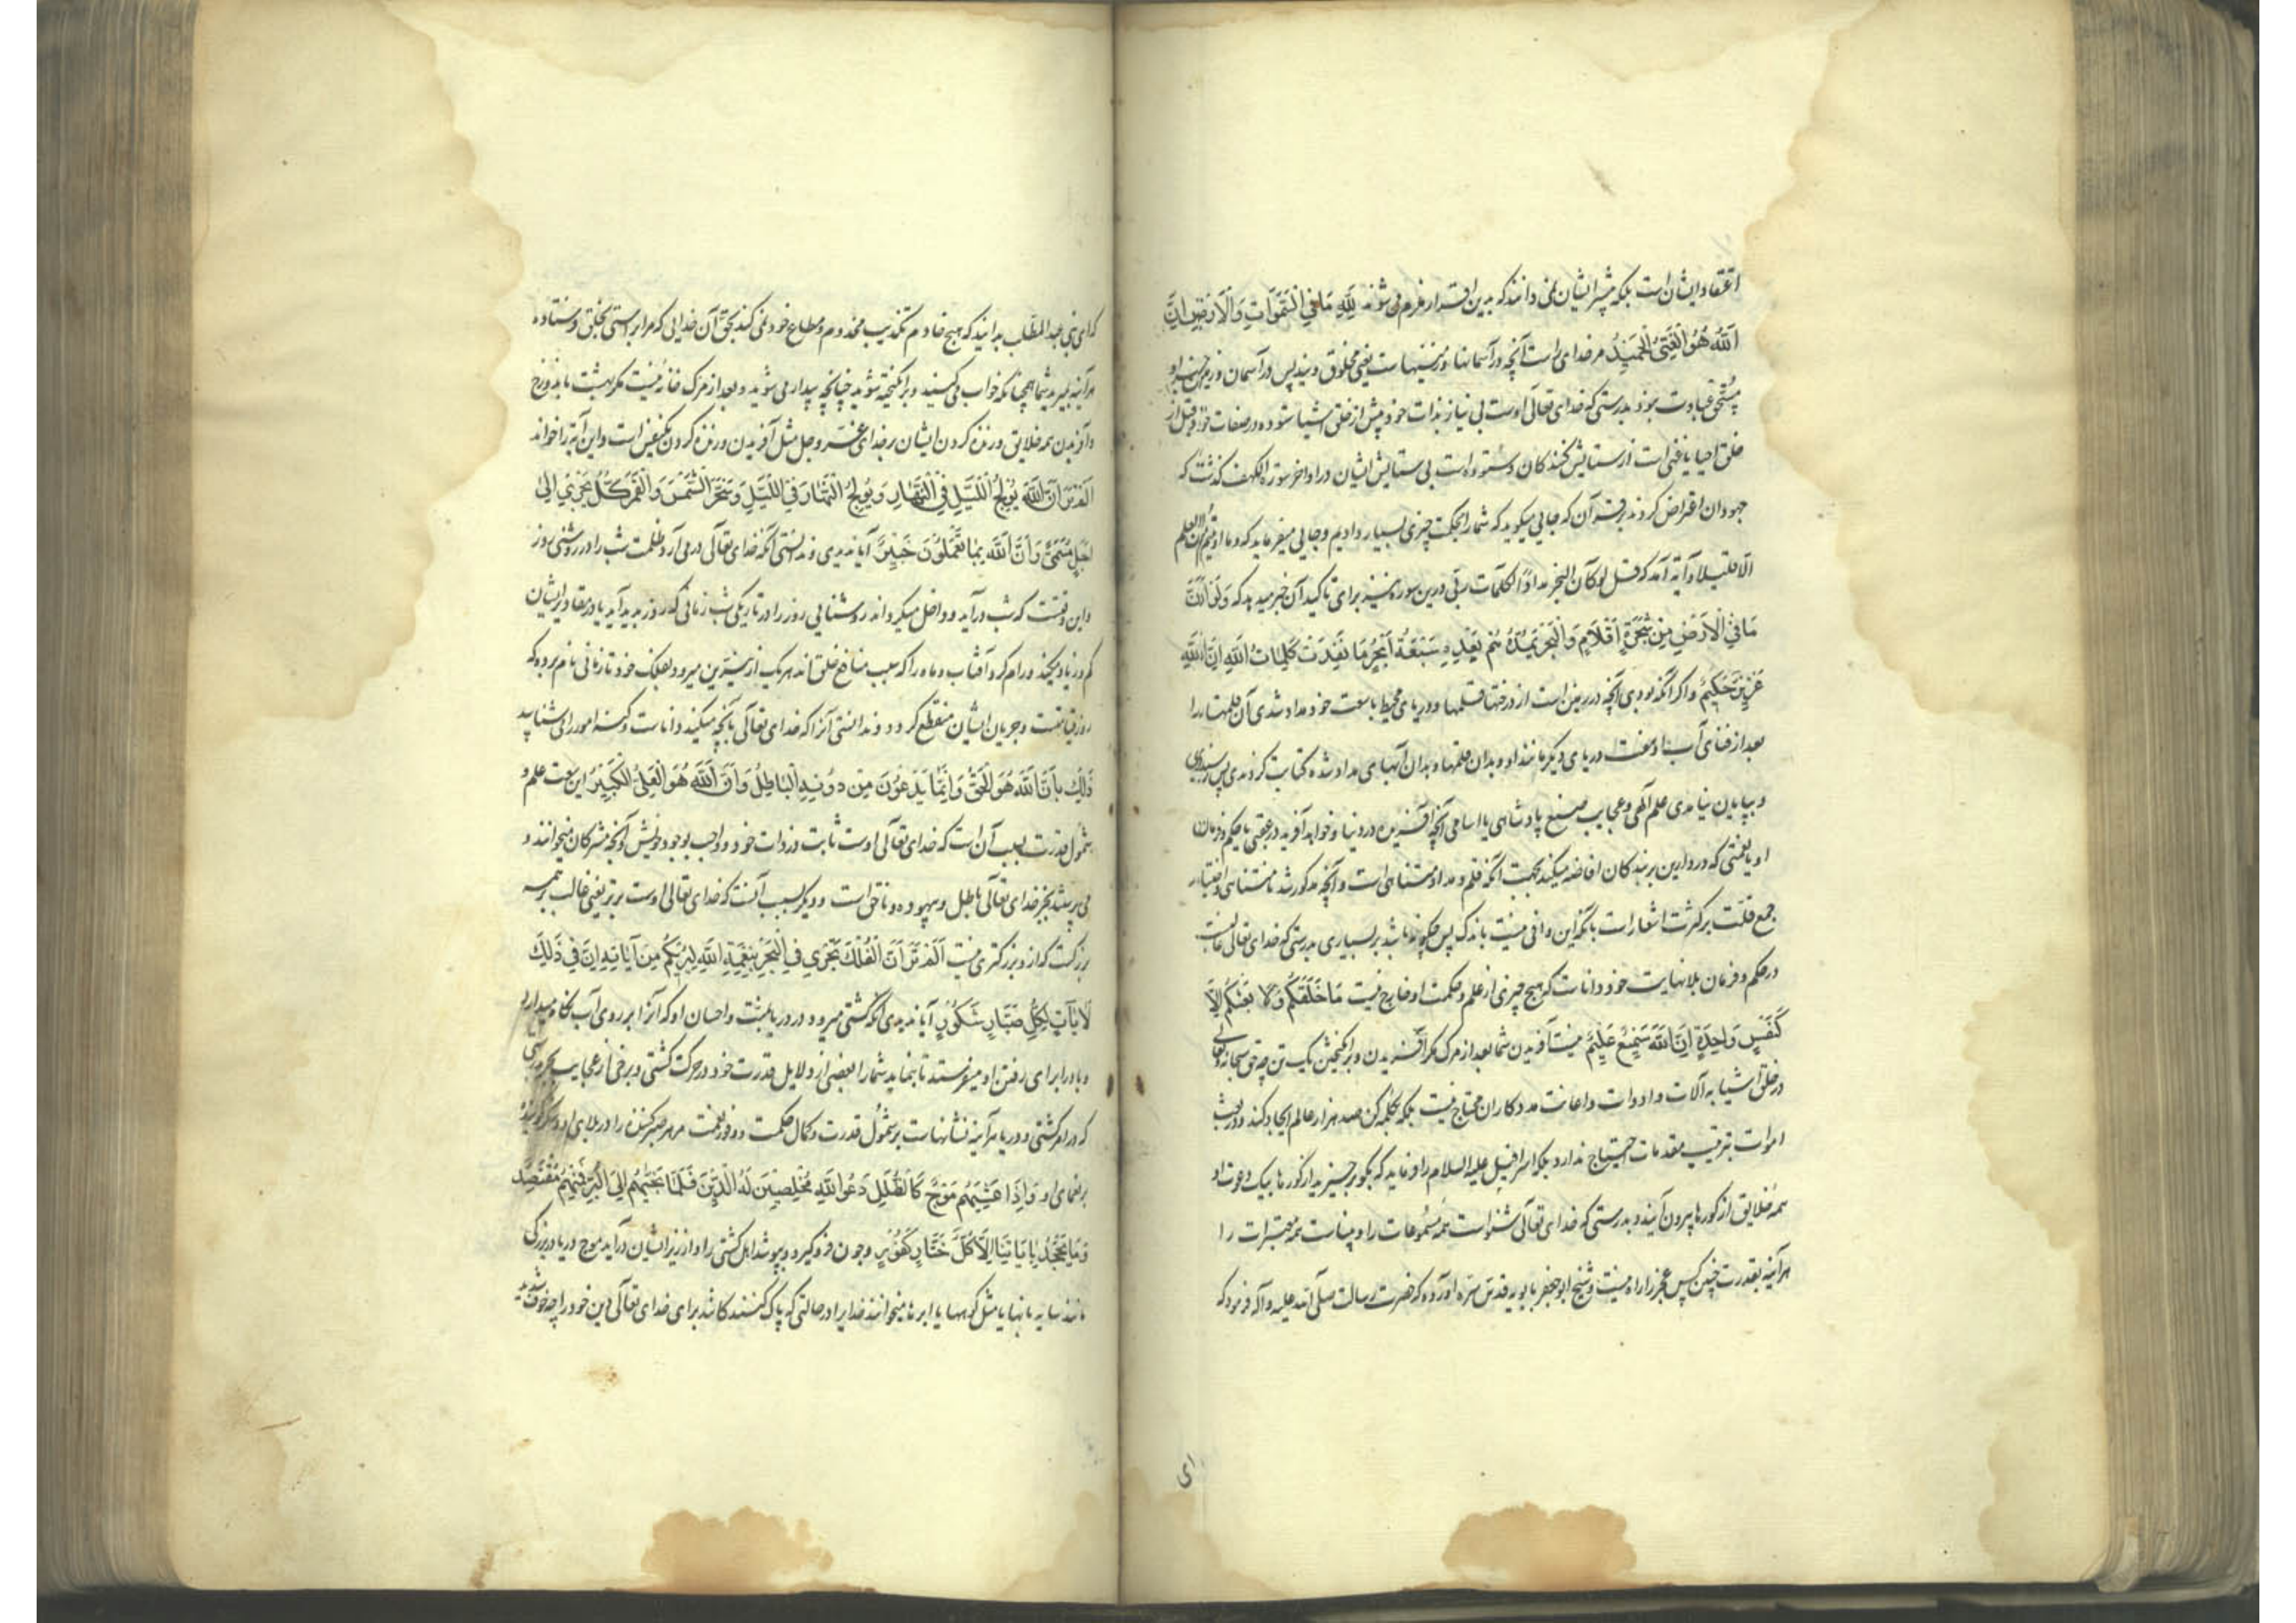 اعتقاد ایشان است بلکه بیشتر ایشان نمی دانند که بدین اقرار ملزم می شوند لِلّهِ مَا فِي السَّمَوَاتِ وَالْأَرْضِ إِنَّ
اللَّهَ هُوَ الْغَنِيُّ الْحَمِيدُ مر خدای راست آنچه در آسمانها و زمینهاست یعنی مخلوق ویند پس در آسمان و زمین جز او
مستحق عبادت نبود بدرستی که خدای تعالی اوست بی نیاز بذات خود پیش از خلق اشیا ستوده در صفات خود قبل از
خلق احیا یا غنی است از ستایش کنندکان و ستوده است بی ستایش ایشان در اواخر سوره الکهف کذشت که
جهودان اعتراض کردند بر قرآن که جایی میکوید که شما را بحکمت چیزی بسیار دادیم و جایی میفرماید که وما اوتیتم من العلم
الا قلیلا و آیه آمد که قل لو کان البحر مدادا لکلمات ربی درین سوره نیز برای تاکید آن خبر میدهد که وَلَوْ أَنَّ
مَا فِي الْأَرْضِ مِنْ شَجَرَةٍ أَقْلَامٌ وَالْبَحْرُ يَمُدُّهُ مِنْ بَعْدِهِ سَبْعَةُ أَبْحُرٍ مَا نَفِدَتْ كَلِمَاتُ اللَّهِ إِنَّ اللَّهَ
عَزِيزٌ حَكِيمٌ و اکر آنکه بودی آنچه در زمین است از درختها قلمها و دریای محیط با سعت خود مداد شدی آن قلمها را
بعد از فنای آب او هفت دریای دیکر مانند او و بدان قلمها و بدان آبهای مداد شده کتابت کردندی پس نرسیدی
و بپایان نیامدی علم الهی و عجایب صنع پادشاهی یا اسامی آنچه آفریده در دنیا و خواهد آفرید در عقبی یا حکم و فرمان
او یا نعمتی که در دارین بر بندکان افاضه میکند بجهت آنکه قلم و مداد متناهی است و آنچه مذکور شد نامتناهی و اختیار
جمع قلت بر کثرت اشعار است بآنکه این وافی نیست باندک پس چکونه باشد بر بسیاری بدرستی که خدای تعالی غالبست
در حکم و فرمان بلانهایت خود داناست که هیچ چیزی از علم و حکمت او خارج نیست مَا خَلْقُكُمْ وَلَا بَعْثُكُمْ إِلَّا
كَنَفْسٍ وَاحِدَةٍ إِنَّ اللَّهَ سَمِيعٌ عَلِيمٌ نیست آفریدن شما بعد از مرک مکر آفریدن و برانکیختن یک تن چه حق سبحانه و تعالی
در خلق اشیا به آلات و ادوات و اعانت مددکاران محتاج نیست بلکه بکلمه کن صد هزار عالم ایجاد کند و در بعث
اموات بترتیب مقدمات احتیاج ندارد بلکه اسرافیل علیه السلام را فرماید که بکو برخیزید از کورها بیک دعوت او
همه خلایق از کورها بیرون آیند بدرستی که خدای تعالی شنواست همه مسموعات را و بیناست همه مبصرات را
هرآینه بقدرت چنین کس عجز را راه نیست و شیخ ابو جعفر بابویه قدس سره آورده که حضرت رسالت صلی الله علیه و آله فرمود که
ای
که ای بنی عبد المطلب بدانید که هیچ خادم تکذیب مخدوم و مطاع خود نمی کند بحق آن خدایی که مرا براستی بخلق فرستاده
هرآینه بمیرید شما همچنانکه خواب میکنید و برانکیخته شوید چنانچه بیدار می شوید و بعد از مرک خانه نیست مکر بهشت یا دوزخ
و آفریدن همه خلایق و زنده کردن ایشان بر خدای عز و جل مثل آفریدن و زنده کردن یکنفس است و این آیه را خواند
أَلَمْ تَرَ أَنَّ اللَّهَ يُولِجُ اللَّيْلَ فِي النَّهَارِ وَيُولِجُ النَّهَارَ فِي اللَّيْلِ وَسَخَّرَ الشَّمْسَ وَالْقَمَرَ كُلٌّ يَجْرِي إِلَى
أَجَلٍ مُسَمًّى وَأَنَّ اللَّهَ بِمَا تَعْمَلُونَ خَبِيرٌ آیا ندیدی و ندانستی آنکه خدای تعالی در می آرد ظلمت شب را در روشنی روز
و این وقتیست که شب درآید و داخل میکرداند روشنایی روز را در تاریکی شب زمانی که روز پدید آید یا در مقادیر ایشان
کم و زیاد میکند و رام کرد آفتاب و ماه را که سبب منافع خلق اند هر یک از نیرین میرود بفلک خود تا زمانی نام برده که
روز قیامت و جریان ایشان منقطع کردد و ندانستی آنرا که خدای تعالی بآنچه میکنید داناست و کنه امور را شناسد
ذَلِكَ بِأَنَّ اللَّهَ هُوَ الْحَقُّ وَأَنَّمَا يَدْعُونَ مِنْ دُونِهِ الْبَاطِلُ وَأَنَّ اللَّهَ هُوَ الْعَلِيُّ الْكَبِيرُ این سعت علم و
شمول قدرت بسبب آن است که خدای تعالی اوست ثابت در ذات خود و واجب بوجود خویش و آنچه مشرکان میخوانند و
می پرستند بجز خدای تعالی باطل و بیهوده و ناحق است و دیکر بسبب آنست که خدای تعالی اوست برتر یعنی غالب بر همه
بزرکست که از و بزرکتری نیست أَلَمْ تَرَ أَنَّ الْفُلْكَ تَجْرِي فِي الْبَحْرِ بِنِعْمَةِ اللَّهِ لِيُرِيَكُمْ مِنْ آيَاتِهِ إِنَّ فِي ذَلِكَ
لَآيَاتٍ لِكُلِّ صَبَّارٍ شَكُورٍ آیا ندیدی آنکه کشتی میرود در دریا بمنت و احسان او که آنرا بر روی آب نکاه میدارد
و باد را برای رفتن او میفرستد تا بنماید شما را بعضی از دلایل قدرت خود در حرکت کشتی و برخی از عجایب بحر بدرستی
که در امر کشتی و دریا هرآینه نشانهاست بر شمول قدرت و کمال حکمت و وفور نعمت مر هر صبر کننده را در بلای او و شکر کوینده
بر نعمای او وَإِذَا غَشِيَهُمْ مَوْجٌ كَالظُّلَلِ دَعَوُا اللَّهَ مُخْلِصِينَ لَهُ الدِّينَ فَلَمَّا نَجَّيهُمْ إِلَى الْبَرِّ فَمِنْهُمْ مُقْتَصِدٌ
وَمَا يَجْحَدُ بِآيَاتِنَا إِلَّا كُلُّ خَتَّارٍ كَفُورٍ و چون فرو کیرد و بپوشد اهل کشتی را و از زبر ایشان درآید موج دریا در بزرکی
مانند سایه بانها یا مثل کوهها یا ابرها میخوانند خدا را در حالتی که پاک کنندکان باشند برای خدای تعالی دین خود را چه خوف شدید